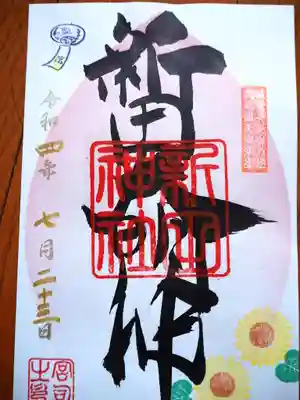 新田大明神
新田神社
令和四年 七月二十三日
宮司之印